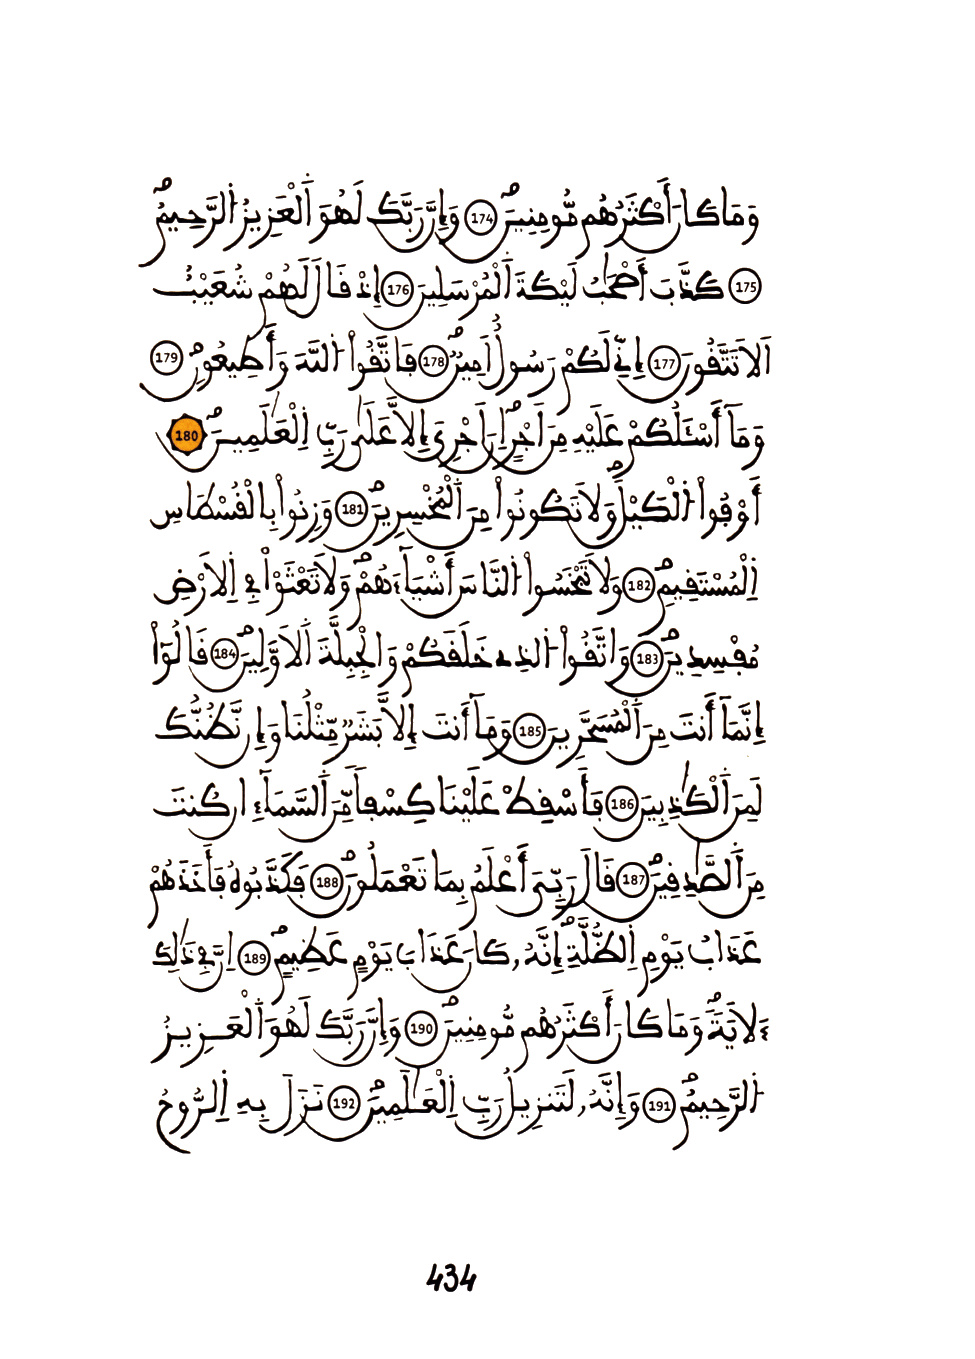 وَمَا كَانَ أَكْثَرُهُم مُّومِنِينَ 174 وَإِنَّ رَبَّكَ لَهُوَ اَ۬لْعَزِيزُ اُ۬لرَّحِيمُ
175 كَذَّبَ أَصْحَٰبُ لَيْكَةَ اَ۬لْمُرْسَلِينَ 176 إِذْ قَالَ لَهُمْ شُعَيْبٌ
اَلَا تَتَّقُونَ 177 إِنِّے لَكُمْ رَسُولٌ اَمِينٌ 178 فَاتَّقُواْ اُ۬للَّهَ وَأَطِيعُونِ 179
وَمَآ أَسْـَٔلُكُمْ عَلَيْهِ مِنَ اَجْرٍ اِنَ اَجْرِيَ إِلَّا عَلَىٰ رَبِّ اِ۬لْعَٰلَمِينَ 180
أَوْفُواْ اُ۬لْكَيْلَ وَلَا تَكُونُواْ مِنَ اَ۬لْمُخْسِرِينَ 181 وَزِنُواْ بِالْقُسْطَاسِ
اِ۬لْمُسْتَقِيمِ 182 وَلَا تَبْخَسُواْ اُ۬لنَّاسَ أَشْيَآءَهُمْ وَلَا تَعْثَوْاْ فِے اِ۬لَارْضِ
مُفْسِدِينَ 183 وَاتَّقُواْ اُ۬لذِے خَلَقَكُمْ وَالْجِبِلَّةَ اَ۬لَاوَّلِينَ 184 قَالُوٓاْ
إِنَّمَآ أَنتَ مِنَ اَ۬لْمُسَحَّرِينَ 185 وَمَآ أَنتَ إِلَّا بَشَرٌ مِّثْلُنَا وَإِن نَّظُنُّكَ
لَمِنَ اَ۬لْكَٰذِبِينَ 186 فَأَسْقِطْ عَلَيْنَا كِسْفاً مِّنَ اَ۬لسَّمَآءِ ان كُنتَ
مِنَ اَ۬لصَّٰدِقِينَ 187 قَالَ رَبِّيَ أَعْلَمُ بِمَا تَعْمَلُونَ 188 فَكَذَّبُوهُ فَأَخَذَهُمْ
عَذَابُ يَوْمِ اِ۬لظُّلَّةِ إِنَّهُۥ كَانَ عَذَابَ يَوْمٍ عَظِيمٍ 189 اِنَّ فِے ذَٰلِكَ
ءَلَايَةٗ وَمَا كَانَ أَكْثَرُهُم مُّومِنِينَ 190 وَإِنَّ رَبَّكَ لَهُوَ اَ۬لْعَزِيزُ
اُ۬لرَّحِيمُ 191 وَإِنَّهُۥ لَتَنزِيلُ رَبِّ اِ۬لْعَٰلَمِينَ 192 نَزَلَ بِهِ اِ۬لرُّوحُ
434